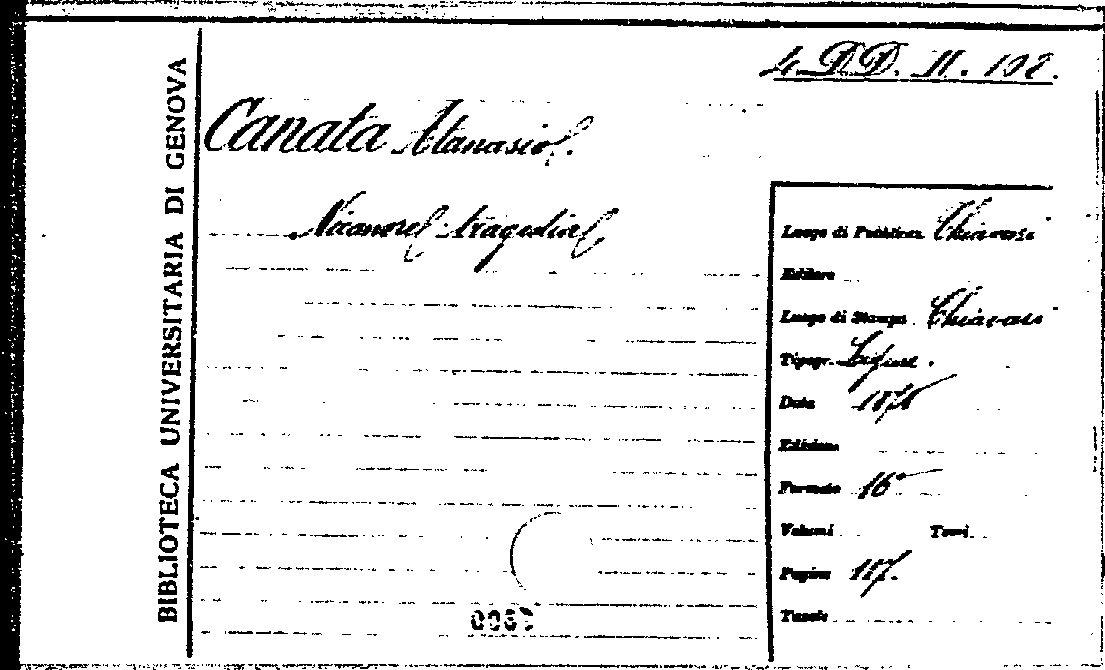 BIBLIOTECA UNIVERSITARIA DI GENOVA
4. DD. II. 102.
Canata Atanasio.
Nicanore tragedia
Luogo di Pubblicaz. Chiavari
Editore
Luogo di Stampa Chiavari
Tipogr. Ligure.
Data
Edizione
Formato 16°
Volumi Tomi
Pagine 117.
Tavole